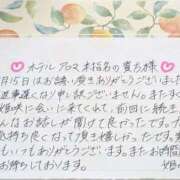 ホテル アロマ 本指名の貴方様
月15日はお誘い頂きありがとうございました
返事遅くなり申し訳ございません。また
姫咲に会いに来てくれて、前回に続き
んなお話しが聞けて良かったです。
気持ち良くなって頂き嬉しかったです
もいつもありがとうございます。またお時間
お待ちしております。